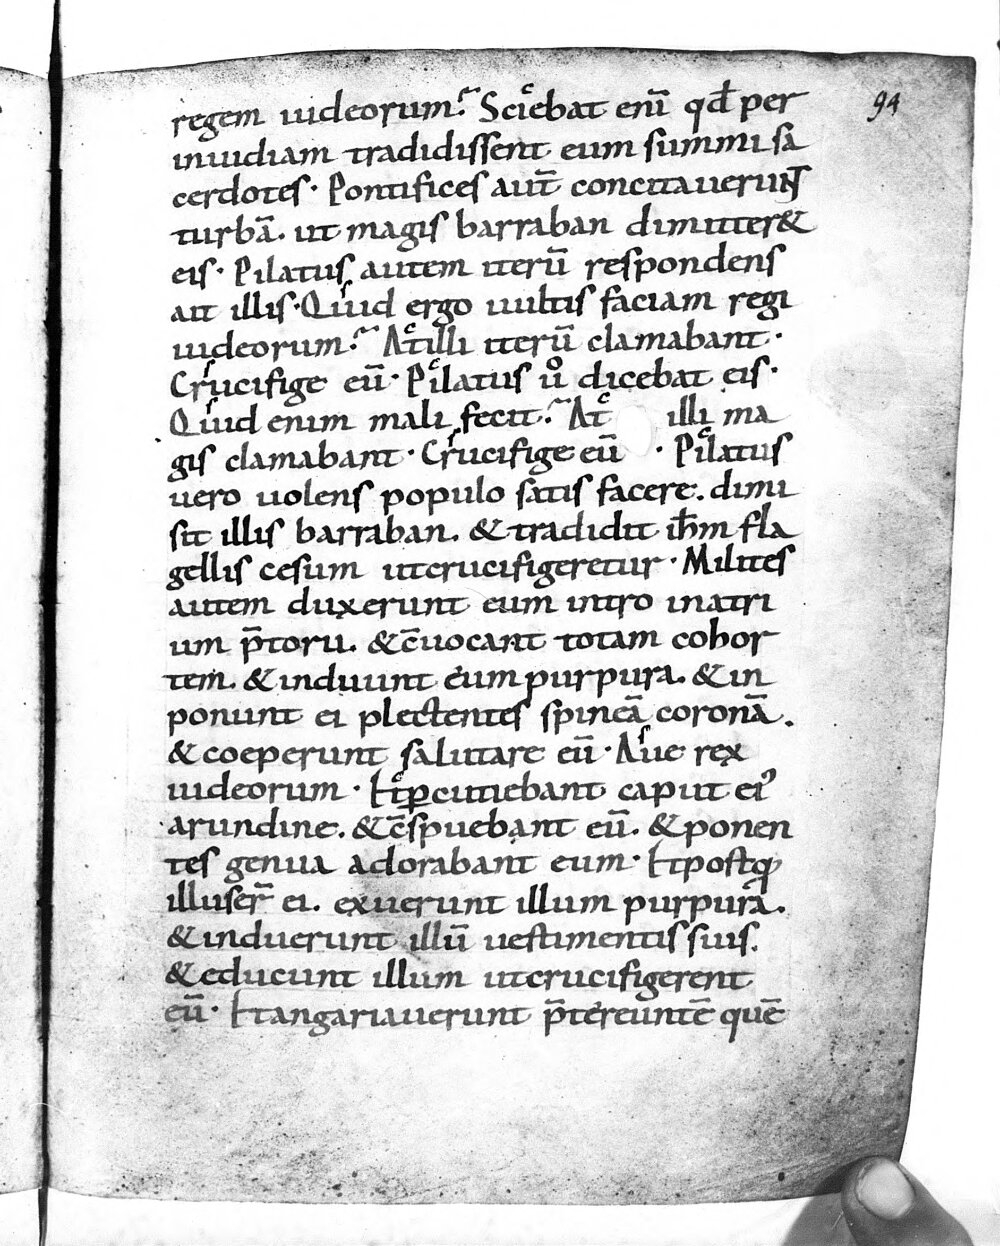 94
regem iudeorum? Sciebat eni̅ qd̅ per
inuidiam tradidissent eum summi sa
cerdotes· Pontifices aut̅ concitauerunt
turba̅. ut magis barraban dimitter&
eis· Pilatus autem iteru̅ respondens
ait illis· Quid ergo uultis faciam regi
iudeorum? At illi iteru̅ clamabant·
Crucifige eu̅· Pilatus uͦ dicebat eis·
Quid enim mali fecit? At illi ma
gis clamabant· Crucifige eu̅· Pilatus
uero uolens populo satis facere. dimi
sit illis barraban. & tradidit ih̅m fla
gellis cesum ut crucifigeretur· Milites
autem duxerunt eum intro in atri
um p̅torii. & c̅uocant totam cohor
tem. & induunt eum purpura. & in
ponunt ei plectentes spinea̅ corona̅.
& coeperunt salutare eu̅· Aue rex
iudeorum· Et ꝑcutiebant caput ei᾽
arundine. & c̅spuebant eu̅. & ponen
tes genua adorabant eum· Et postqꝫ
illuser̅ ei. exuerunt illum purpura̅.
& induerunt illu̅ uestimentis suis.
& educunt illum ut crucifigerent
eu̅· Et angariauerunt p̅tereunte̅ que̅